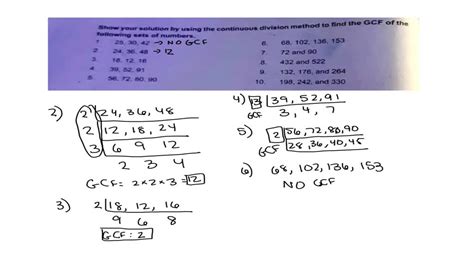 Show your solution by using the continuous division method to find the GCF of the
following sets of numbers.
1. 25, 30, 42 → NO GCF
2. 24, 36, 48 → 12
3. 18, 12, 16
4. 39, 52, 91
5. 56, 72, 80, 90
6. 68, 102, 136, 153
7. 72 and 90
8. 432 and 522
9. 132, 176 and 264
10. 198, 242 and 330
2) 2 24, 36, 48
2 12, 18, 24
3 6 9 12
2 3 4
GCF: 2×2×3 = 12
3) 2 18, 12, 16
9 6 8
GCF: 2
4) 13 39, 52, 91
GCF 3, 4, 7
5) 2 56, 72, 80, 90
GCF 28, 36, 40, 45
6) 68, 102, 136, 153
NO GCF